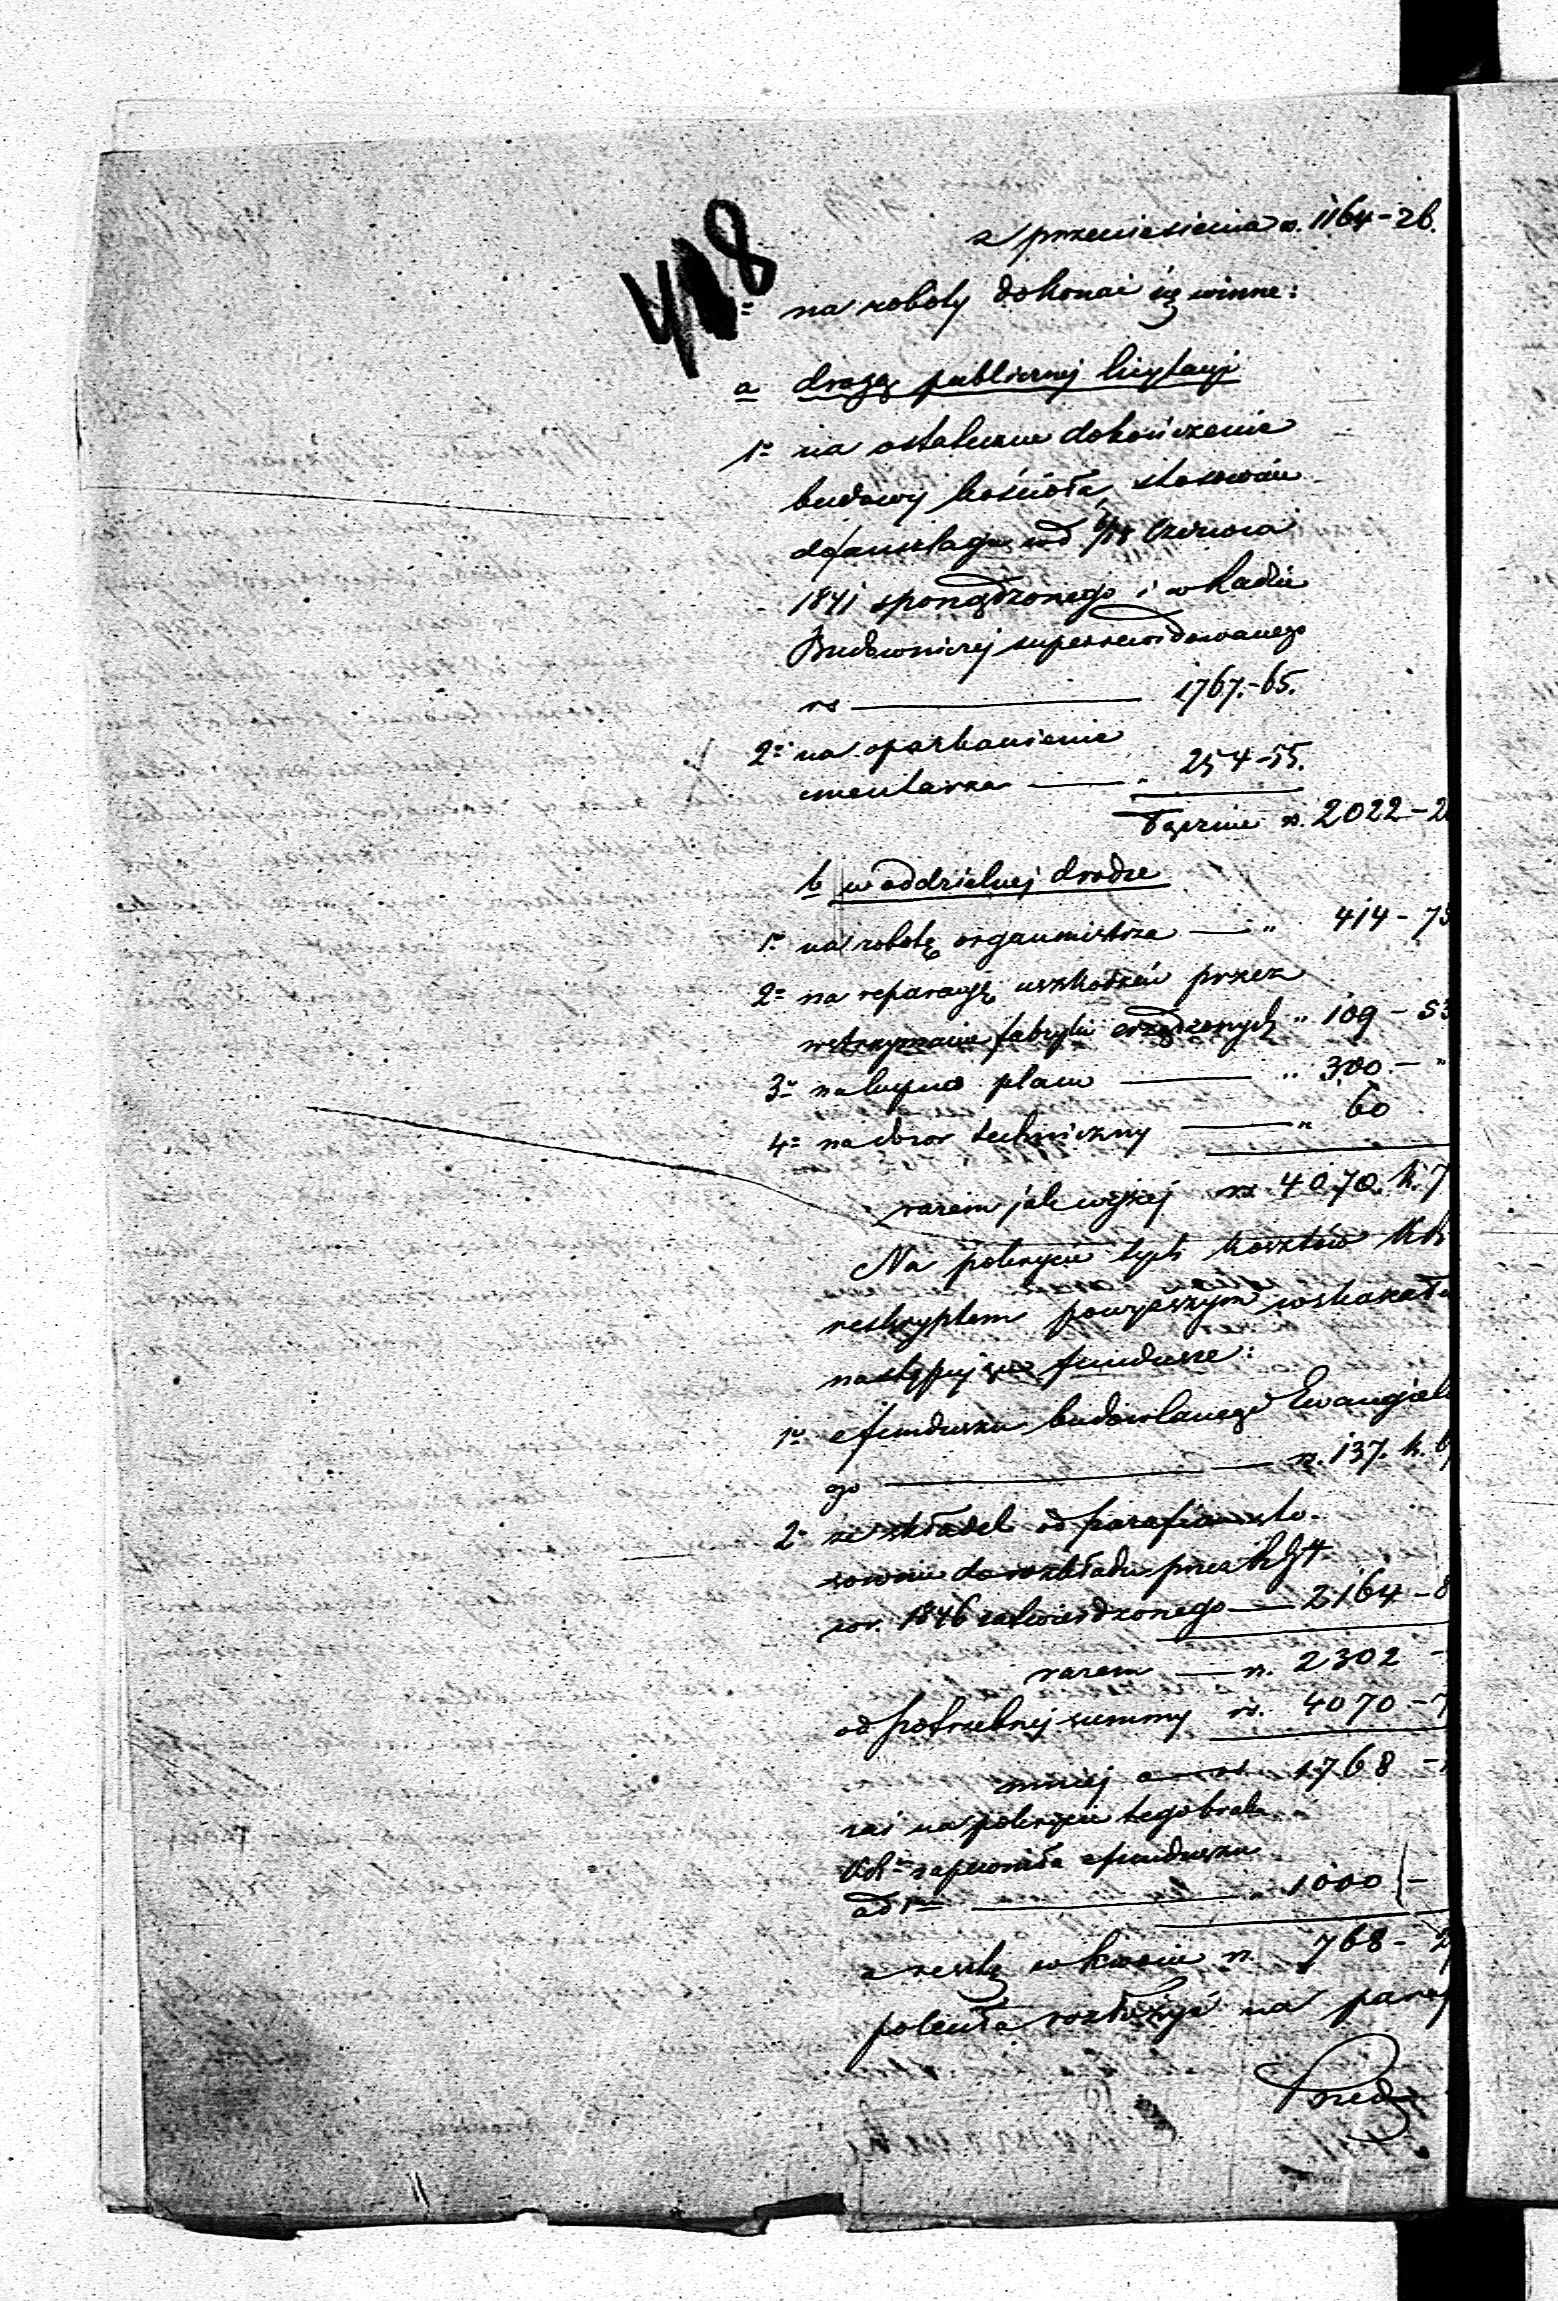 z przeniesienia rs. 1164 - 26.
418
na roboty dokonać się winne:
a drogą publicznej licytacji
1o na ostateczne dokończenie
budowy kościoła, stosownie
do anszlagu pod 6/18 Czerwca
1841 sporządzonego i w Radzie
Budowniczej superrewidowanego
rs — 1767.-65.
2o na oparkanienie
cmentarza — " 254-55.
Łącznie rs. 2022-2
b w oddzielnej drodze
1o na robotę organmistrza — " 414 - 73
2o na reparację uszkodzeń przez
wstrzymanie fabryki zrządzonych " 109 - 53
3o na kupno placu — " 300. - "
4o na dozór techniczny — " 60
razem jak wyżej rs. 4070. k. 7
Na pokrycie tych kosztów KR
reskryptem powyższym wskazała
następujące fundusze:
1o z funduszu budowlanego Ewangieli
go — rs. 137. k. 6
2o ze składek od parafian sto-
sownie do rozkładu przez RG
w r. 1846 zatwierdzonego — 2164 - 8
razem — rs. 2302 -
od potrzebnej summy rs. 4070 - 7
mniej o — rs. 1768 -
zaś na pokrycie tego braku
KR zapewniła z funduszu
ad 1 — " 1000 -
a resztę w kwocie rs. 768 - 2
poleciła rozłożyć na paraf
Przed